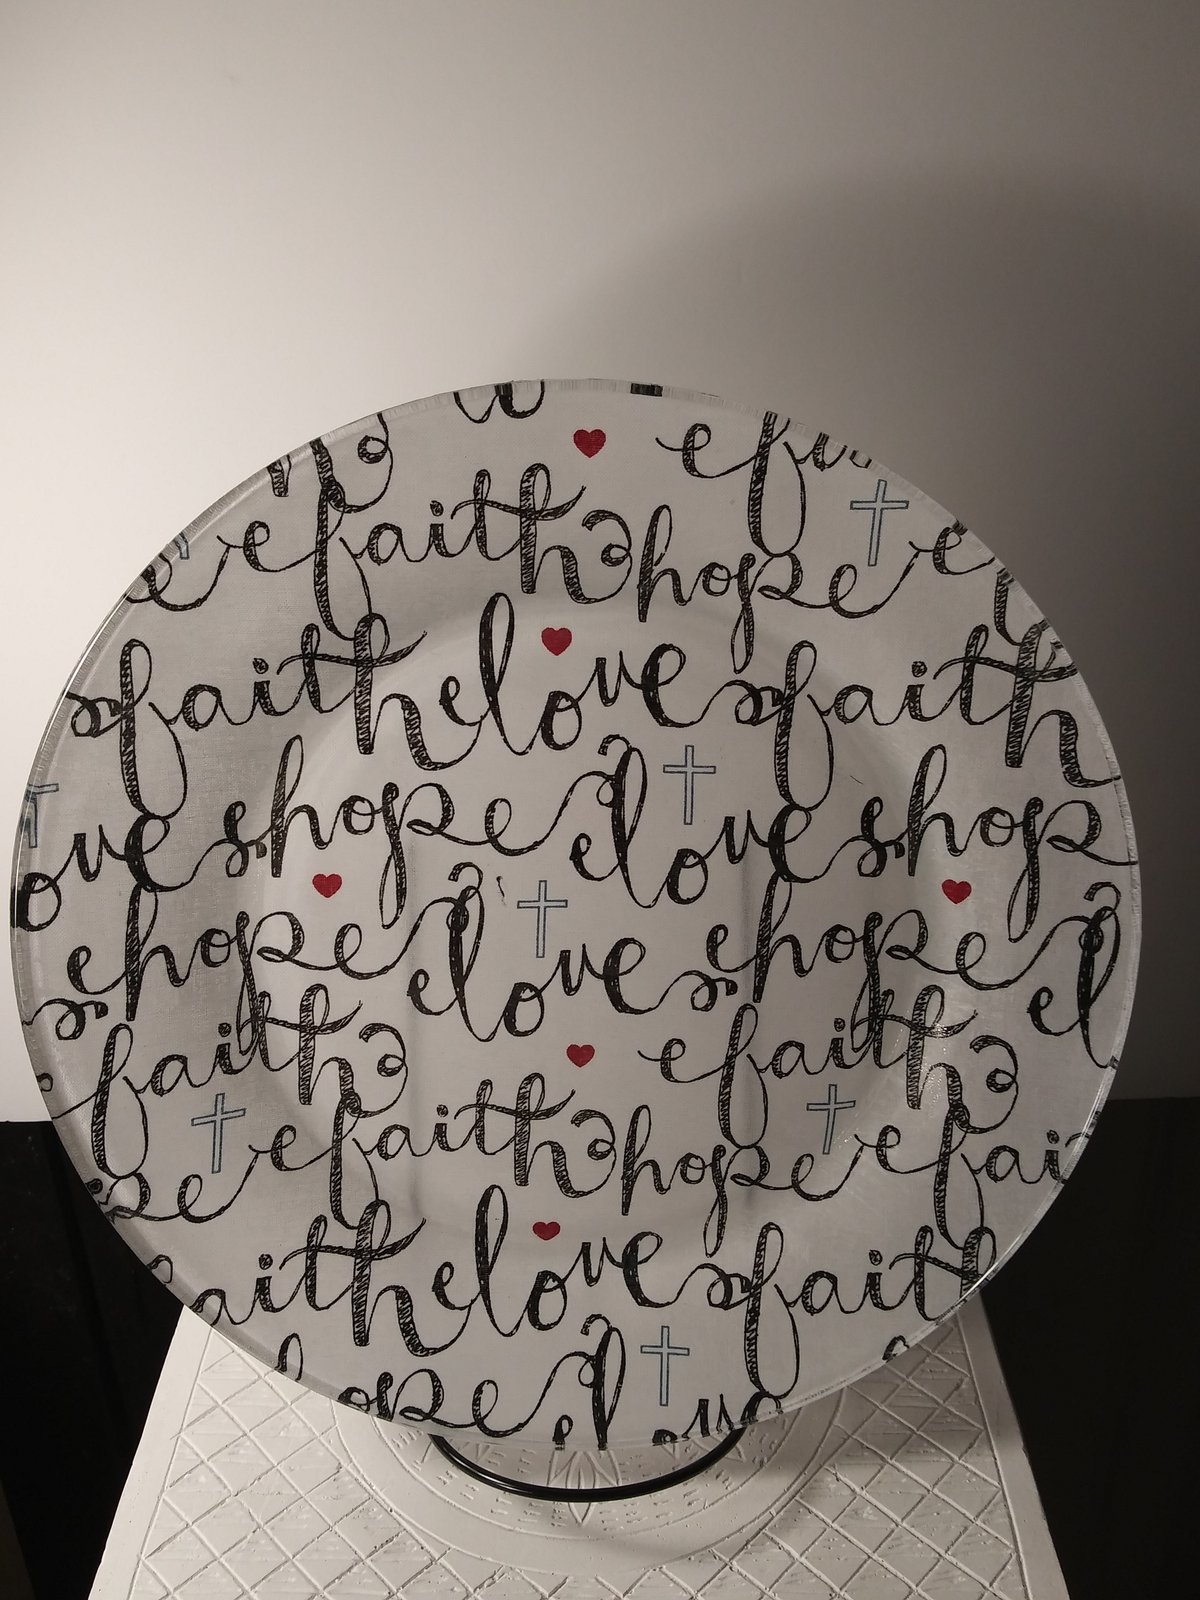 faith hope
faith love faith
hope
love shop
hope love hope
faith faith
faith hope fai
faith love faith
ope